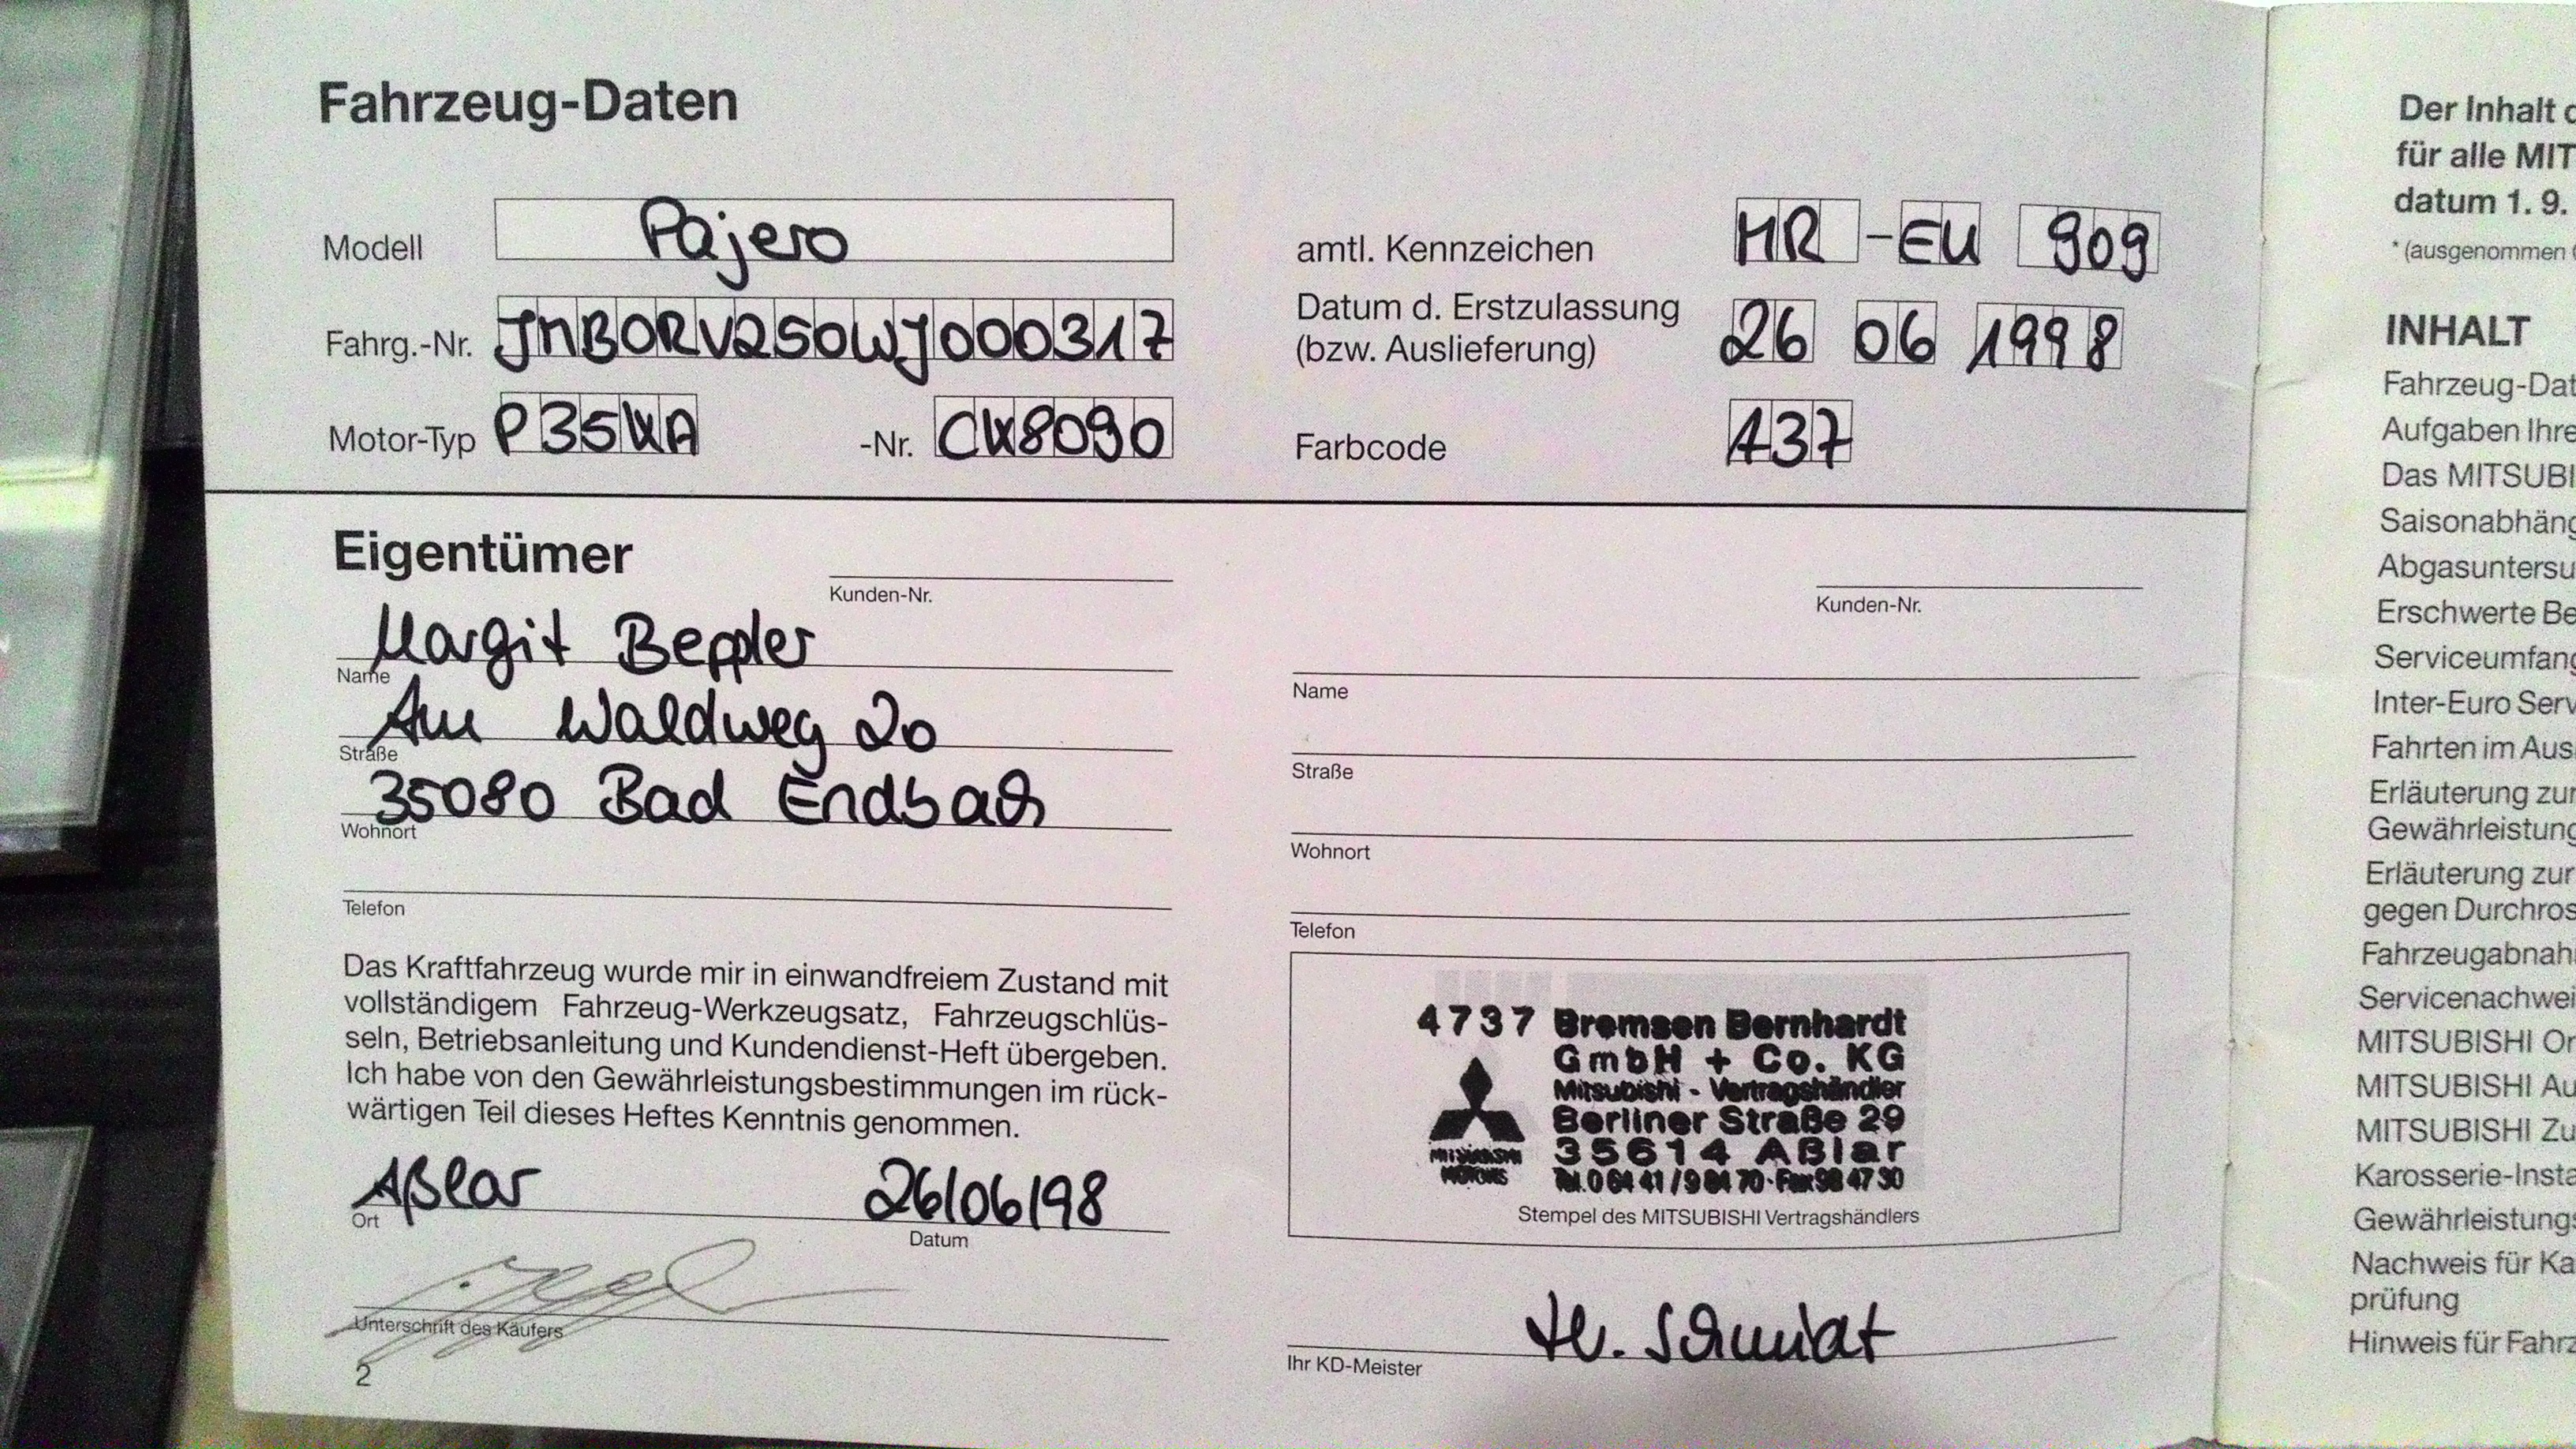 Fahrzeug-Daten
Modell Pajero
Fahrg.-Nr. JMB0RV250WJ000317
Motor-Typ P35WA -Nr. CW8090
amtl. Kennzeichen MR - EU 909
Datum d. Erstzulassung
(bzw. Auslieferung) 26 06 1998
Farbcode A37
Eigentümer
Kunden-Nr.
Margit Beppler
Name
Am Waldweg 20
Straße
35080 Bad Endbach
Wohnort
Telefon
Das Kraftfahrzeug wurde mir in einwandfreiem Zustand mit
vollständigem Fahrzeug-Werkzeugsatz, Fahrzeugschlüs-
seln, Betriebsanleitung und Kundendienst-Heft übergeben.
Ich habe von den Gewährleistungsbestimmungen im rück-
wärtigen Teil dieses Heftes Kenntnis genommen.
Aßlar 26/06/98
Ort Datum
Unterschrift des Käufers
2
Kunden-Nr.
Name
Straße
Wohnort
Telefon
4737 Bremsen Bernhardt
GmbH + Co. KG
Mitsubishi - Vertragshändler
Berliner Straße 29
35614 Aßlar
MITSUBISHI
MOTORS
Tel. 0 64 41 / 9 84 70 · Fax 98 47 30
Stempel des MITSUBISHI Vertragshändlers
Hr. Schmidt
Ihr KD-Meister
Der Inhalt
für alle MIT
datum 1. 9.
* (ausgenommen
INHALT
Fahrzeug-Dat
Aufgaben Ihre
Das MITSUBI
Saisonabhäng
Abgasuntersu
Erschwerte Be
Serviceumfang
Inter-Euro Serv
Fahrten im Aus
Erläuterung zur
Gewährleistung
Erläuterung zur
gegen Durchros
Fahrzeugabnah
Servicenachwei
MITSUBISHI Or
MITSUBISHI Au
MITSUBISHI Zu
Karosserie-Insta
Gewährleistungs
Nachweis für Ka
prüfung
Hinweis für Fahrz